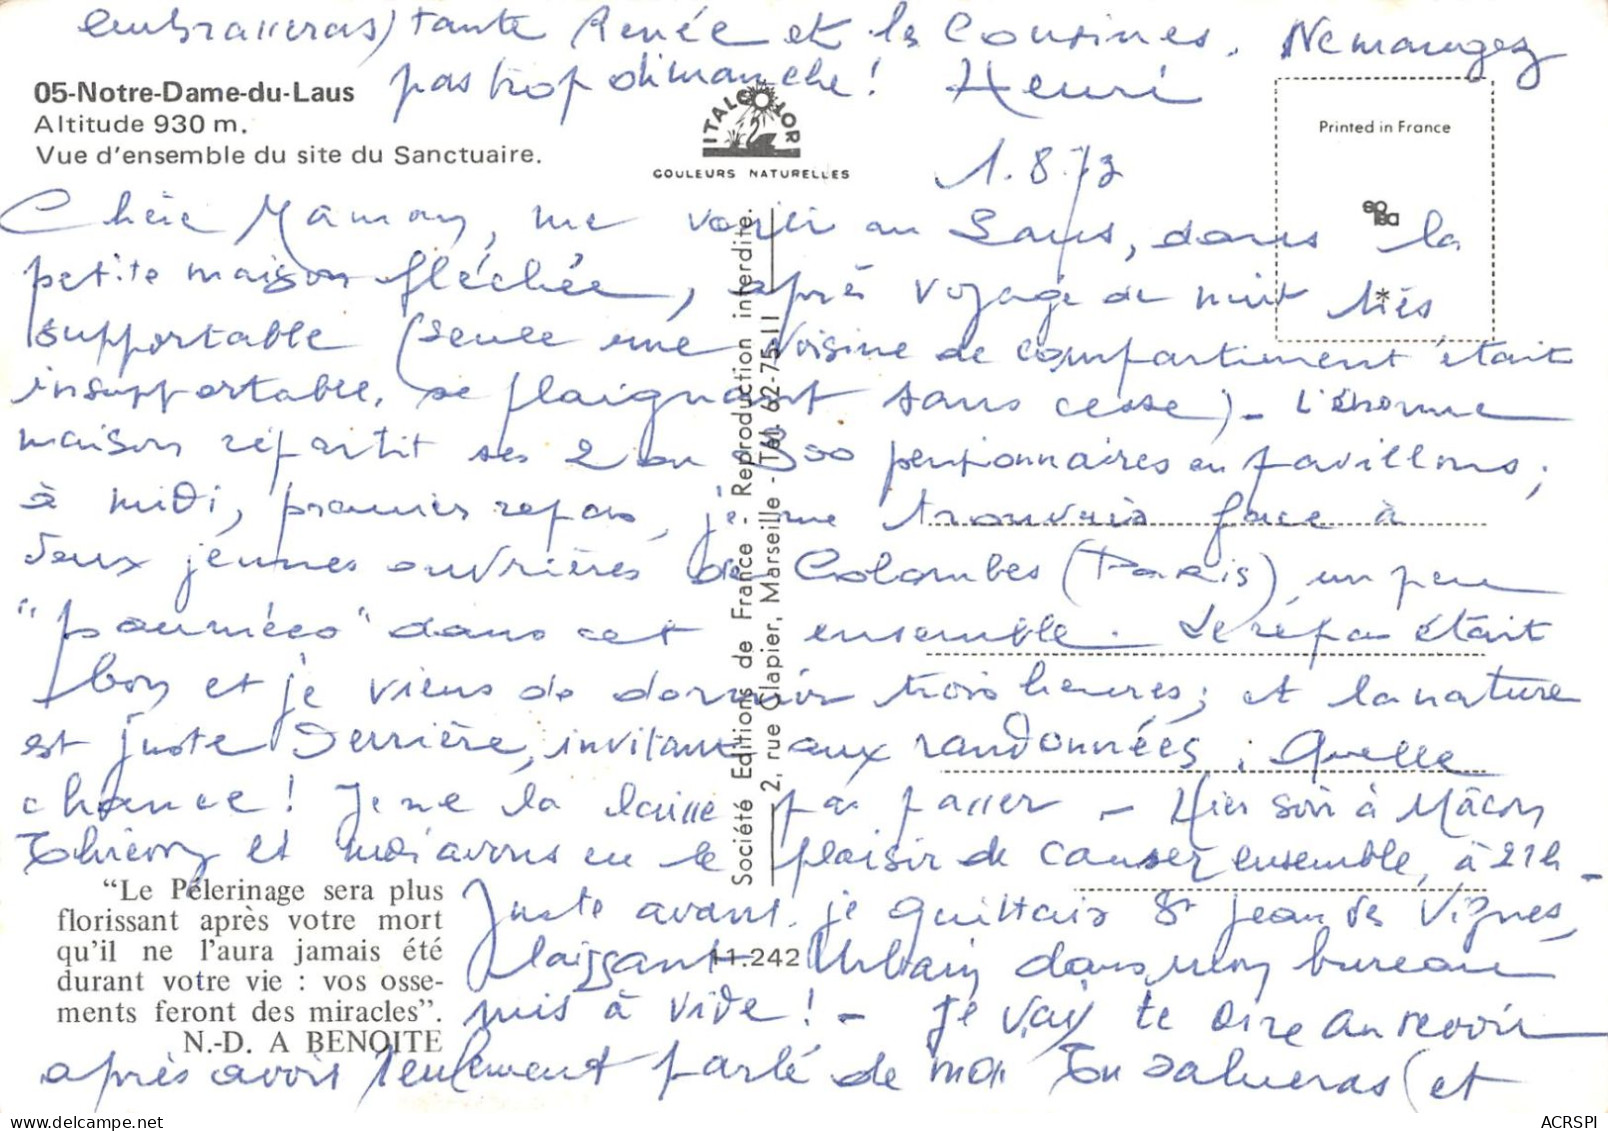 embrasseras) tante Renée et les Cousines. Ne mangez
pas trop dimanche! Henri
05-Notre-Dame-du-Laus
Altitude 930 m.
Vue d'ensemble du site du Sanctuaire.
ITALCOLOR
COULEURS NATURELLES
Printed in France
1.8.73
Chère Maman, me voici au Laus, dans la
petite maison fléchée, après voyage de nuit très
supportable (seule une voisine de compartiment était
insupportable, se plaignant sans cesse) - L'énorme
maison répartit ses 2 ou 300 pensionnaires en pavillons;
à midi, premier repas, je me trouvais face à
deux jeunes ouvrières de Colombes (Paris) un peu
"paumées" dans cet ensemble. Le repas était
bon et je viens de dormir trois heures; et la nature
est juste derrière, invitant aux randonnées. Quelle
chance! Je ne la laisse pas passer - Hier soir à Mâcon
Thierry et moi avons eu le plaisir de causer ensemble, à 21h -
Juste avant, je quittais St Jean des Vignes,
laissant Urbain dans mon bureau
mis à vide! - Je vais te dire au revoir
après avoir seulement parlé de moi Tu salueras (et
"Le Pélerinage sera plus
florissant après votre mort
qu'il ne l'aura jamais été
durant votre vie : vos osse-
ments feront des miracles".
N.-D. A BENOITE
11.242
Société Editions de France - Reproduction interdite.
2, rue Clapier, Marseille - Tél. 62-75-11
ACRSPI